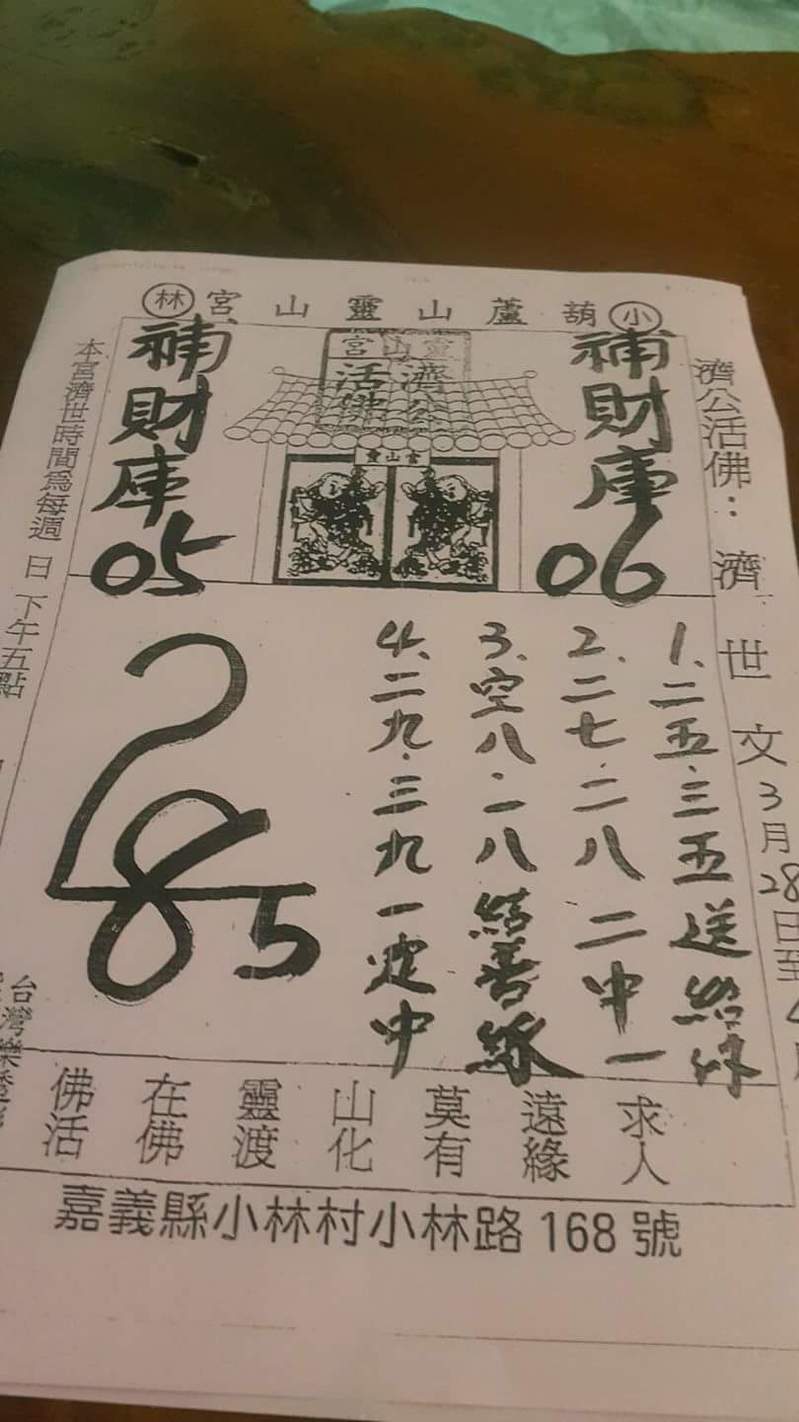 小葫蘆山靈山宮林
濟公活佛：濟世文3月28日至4月
補財庫
06
靈山宮
濟公
活佛
靈山宮
補財庫
05
本宮濟世時間為每週日下午五點
1、二五．三五送給你
2、二七．二八二中一
3、空八．一八結善緣
4、二九．三九一定中
5
台灣樂透彩
求人
遠緣
莫有
山化
靈渡
在佛
佛活
嘉義縣小林村小林路168號